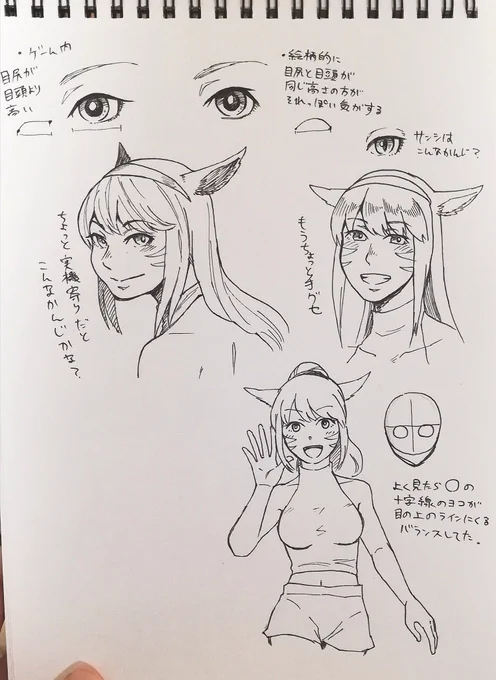 ・ゲーム内
目尻が
目頭より
高い
・絵柄的に
目尻と目頭が
同じ高さの方が
それっぽい気がする
サンシは
こんなかんじ?
ちょっと実機寄りだと
こんなかんじかな?
もうちょっと手グセ
よく見たら○の
十字線のヨコが
目の上のラインにくる
バランスしてた。